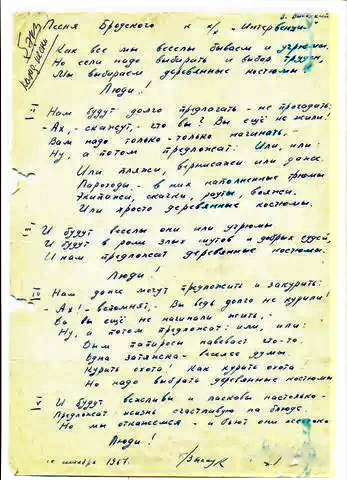 В. Высоцкий
Песня Бродского к к/х - "Интервенция"
5 экз
Как все мы веселы бываем и угрюмы
Но если надо выбирать и выбор труден,
Мы выбираем деревянные костюмы
Люди...
Нам будут долго предлагать - не прогадать:
- Ах, - скажут, - что вы? Вы ещё не жили!
Вам надо только-только начинать, -
Ну, а потом предложат: Или, или:
Или пляжи, вернисажи или даже
Пароходы, - в них наполненные трюмы
Экипажи, скачки, рауты, вояжи.
Или просто деревянные костюмы.
И будут веселы они или угрюмы
И будут в роли злых шутов и добрых судей,
И нам предложат деревянные костюмы.
Люди!
Нам даже могут предложить и закурить:
- Ах! - вспомнят, - Вы ведь долго не курили!
Да вы ещё не начинали жить, -
Ну, а потом предложат: или, или:
Дым папиросы навевает что-то.
Одна затяжка - веселее думы.
Курить охота! Как курить охота!
Но надо выбрать деревянные костюмы
И будут вежливы и ласковы настолько -
Предложат жизнь счастливую на блюде.
Но мы откажемся - и бьют они жестоко
Люди!
1967.